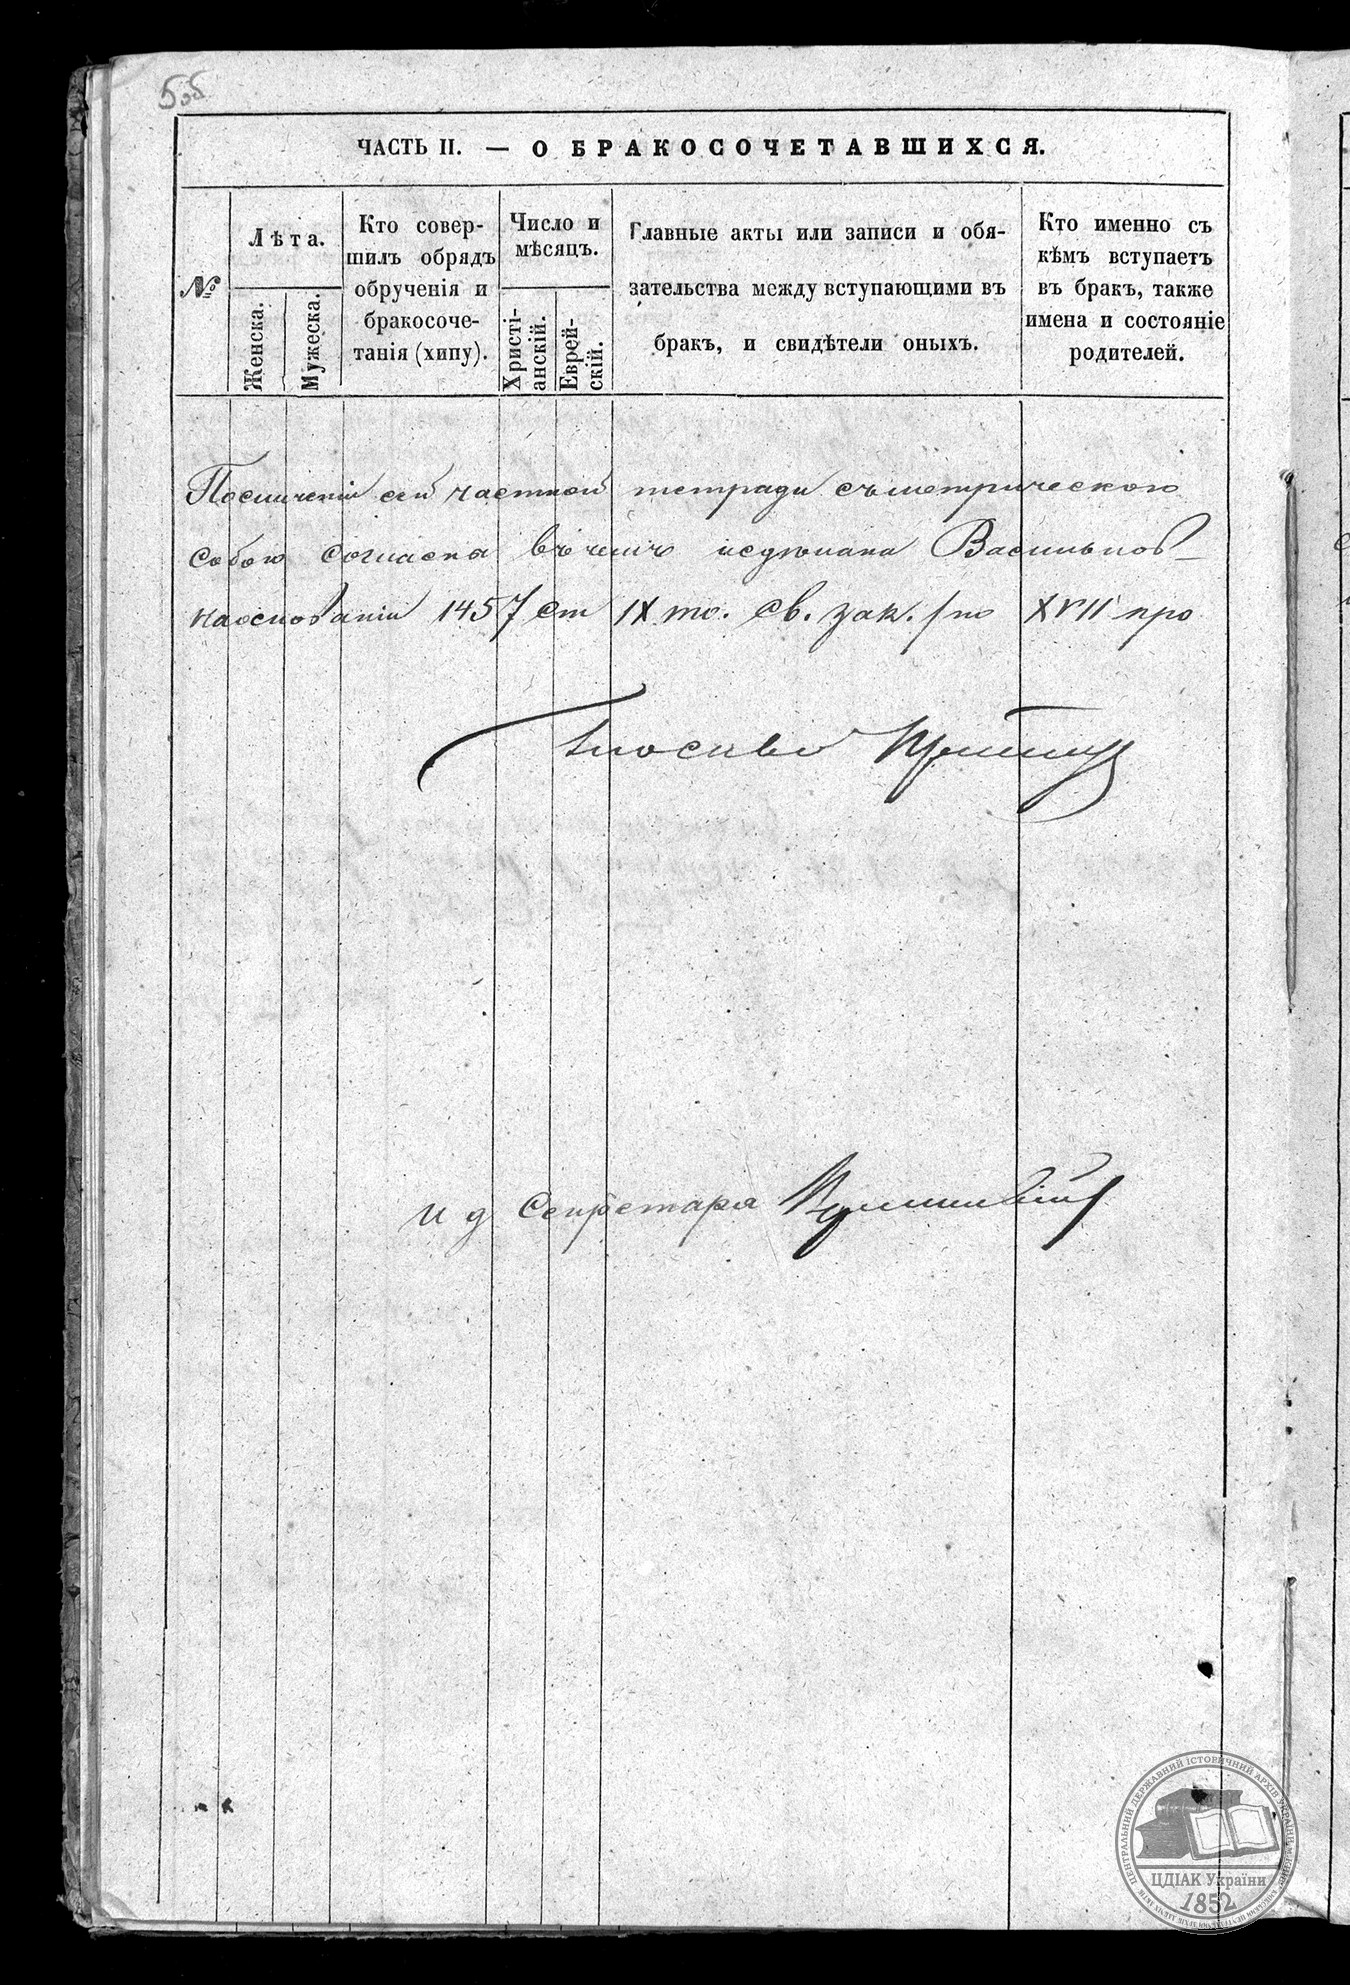 5об
ЧАСТЬ II. — О БРАКОСОЧЕТАВШИХСЯ.
№
Лѣта.
Женска.
Мужеска.
Кто совер-
шилъ обрядъ
обрученія и
бракосоче-
танія (хипу).
Число и
мѣсяцъ.
Христі-
анскій.
Еврей-
скій.
Главные акты или записи и обя-
зательства между вступающими въ
бракъ, и свидѣтели оныхъ.
Кто именно съ
кѣмъ вступаетъ
въ бракъ, также
имена и состояніе
родителей.
По сличеніи сей частной тетради съ метрическою
собою согласна въ чемъ и сдѣлана Васильков-
на основаніи 1457 ст IX т. св. зак. / по XVII про
и д Секретаря
ЦЕНТРАЛЬНИЙ ДЕРЖАВНИЙ ІСТОРИЧНИЙ АРХІВ УКРАЇНИ, М. КИЇВ
ЦДІАК України
1852